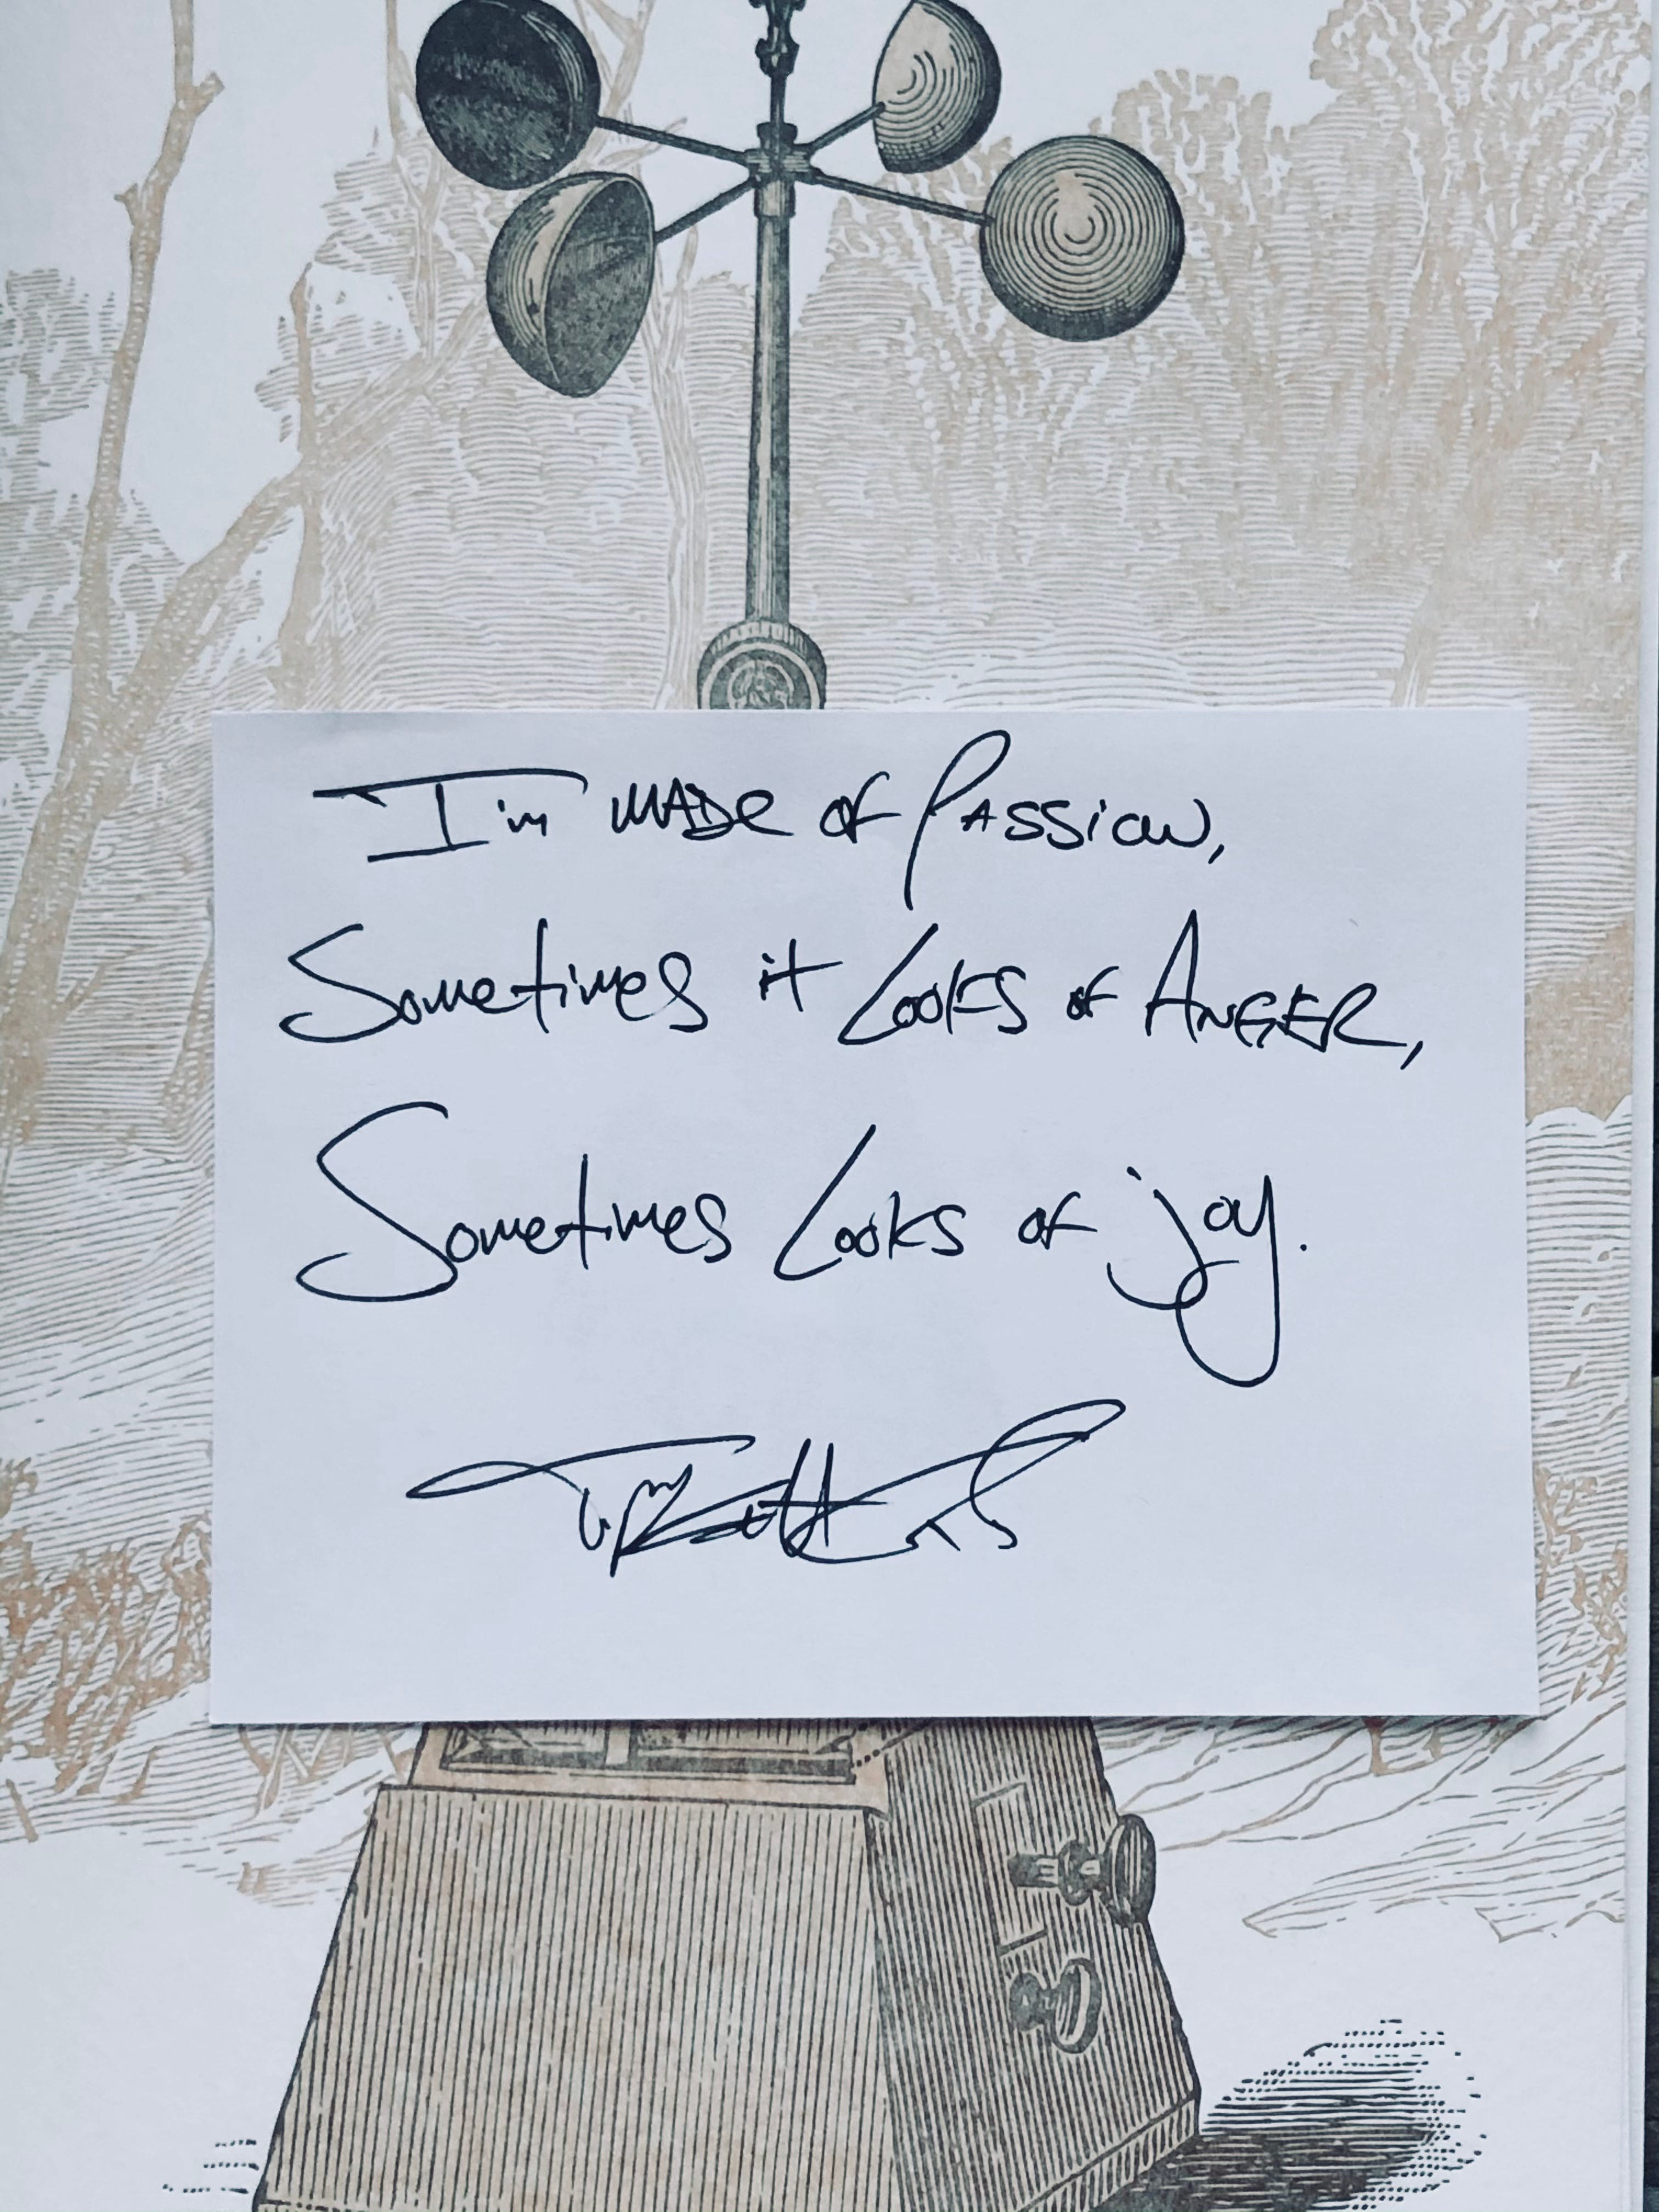 I'm MADe of PASSion,
Sometimes it Looks of ANGER,
Sometimes Looks of joy.